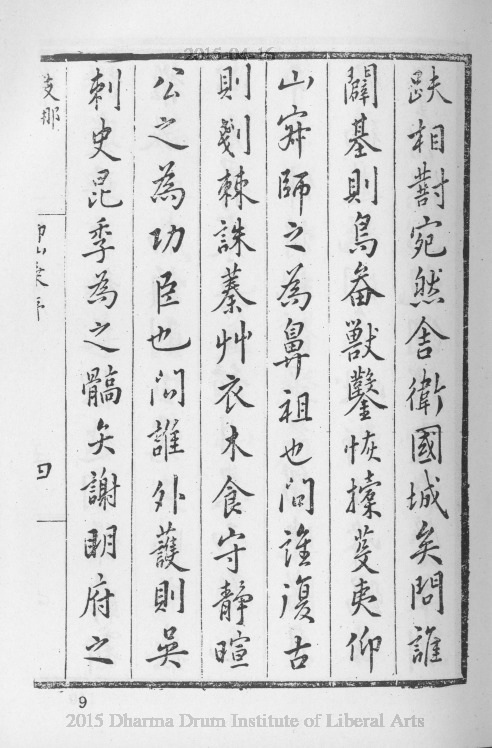 2015-04-16
趺相對宛然舍衛國城矣問誰
闢基則鳥畚獸鑿恢㩴芟夷仰
山寂師之為鼻祖也問誰復古
則剗棘誅蓁艸衣木食守靜暄
公之為功臣也問誰外護則吳
刺史昆季為之髇矢謝明府之
支那
四
9
2015 Dharma Drum Institute of Liberal Arts